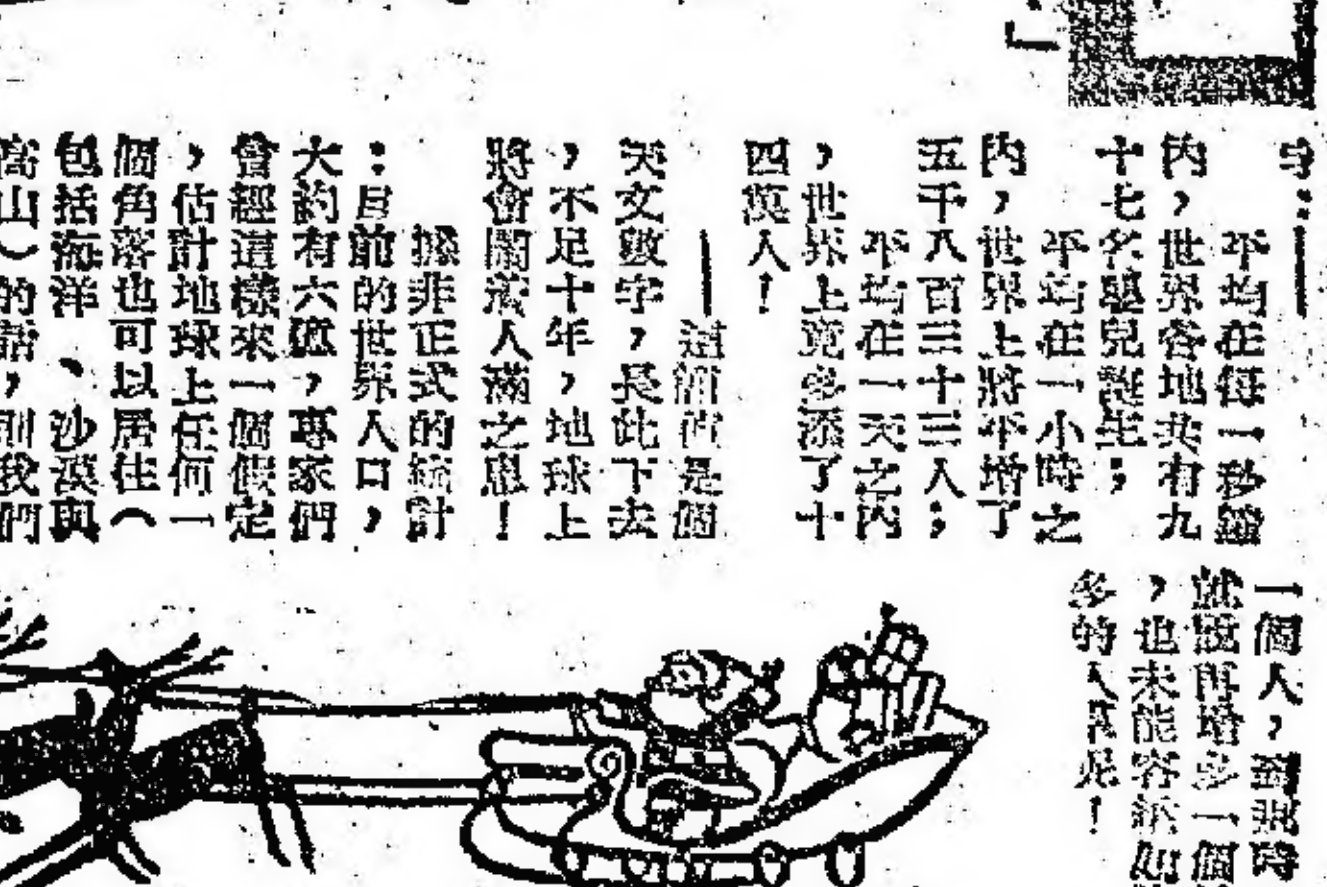 」
：——
平均在每一秒鐘
內，世界各地共有九
十七名嬰兒誕生；
平均在一小時之
內，世界上將平增了
五千八百三十三人；
平均在一天之內
，世界上竟多添了十
四萬人！
——這簡直是個
天文數字，長此下去
，不足十年，地球上
將會鬧滿人滿之患！
據非正式的統計
：目前的世界人口，
大約有六億，專家們
曾經這樣來一個假定
，估計地球上任何一
個角落也可以居住（
包括海洋、沙漠與
高山）的話，則我們
一個人，到那時
就說再增多一個
，也未能容納
多的人口呢！